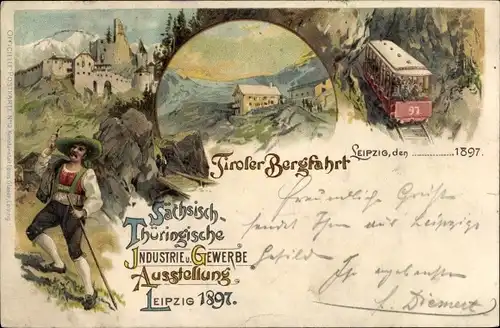 OFFICIELLE POSTKARTE No 2
97
Tiroler Bergfahrt
LEIPZIG, den ............... 1897.
Sächsisch-
Thüringische
INDUSTRIE u. GEWERBE
Ausstellung
LEIPZIG 1897.
Freundliche Grüße
sendet Ihn aus Leipzigs
Gefild
Ihr ergebenster